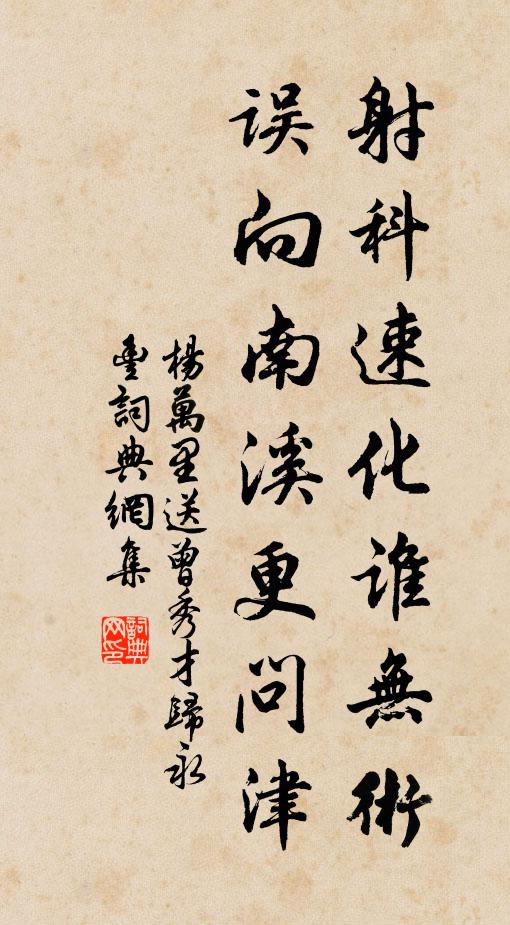 射科速化谁無術
误向南溪更问津
楊萬里送曾秀才歸永
豐詞典網集
詞典網印